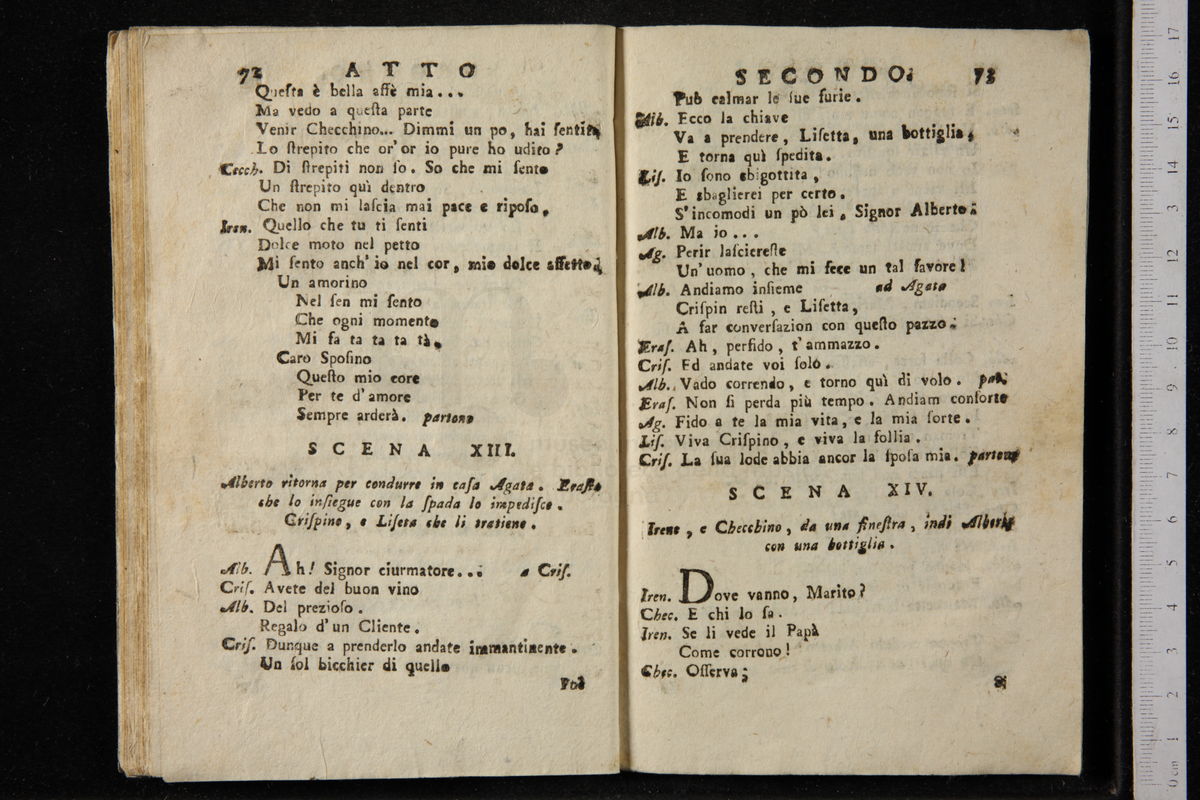 72 ATTO
Queſta è bella affè mia...
Ma vedo a queſta parte
Venir Checchino... Dimmi un po, hai ſentito
Lo ſtrepito che or'or io pure ho udito?
Cecch. Di ſtrepiti non ſo. So che mi ſento
Un ſtrepito quì dentro
Che non mi laſcia mai pace e ripoſo.
Iren. Quello che tu ti ſenti
Dolce moto nel petto
Mi ſento anch'io nel cor, mio dolce affetto.
Un amorino
Nel ſen mi ſento
Che ogni momento
Mi fa ta ta ta tà.
Caro Spoſino
Queſto mio core
Per te d'amore
Sempre arderà. partono
SCENA XIII.
Alberto ritorna per condurre in caſa Agata. Eraſto
che lo inſiegue con la ſpada lo impediſce.
Criſpino, e Liſeta che li tratiene.
Alb. Ah! Signor ciurmatore... a Criſ.
Criſ. Avete del buon vino
Alb. Del prezioſo.
Regalo d'un Cliente.
Criſ. Dunque a prenderlo andate immantinente.
Un ſol bicchier di quello
Può
SECONDO. 73
Può calmar le ſue furie.
Alb. Ecco la chiave
Va a prendere, Liſetta, una bottiglia,
E torna quì ſpedita.
Liſ. Io ſono sbigottita,
E sbaglierei per certo.
S'incomodi un pò lei, Signor Alberto.
Alb. Ma io...
Ag. Perir laſciereſte
Un'uomo, che mi fece un tal favore!
Alb. Andiamo inſieme ad Agata
Criſpin reſti, e Liſetta,
A far converſazion con queſto pazzo.
Eraſ. Ah, perfido, t'ammazzo.
Criſ. Ed andate voi ſolo.
Alb. Vado correndo, e torno quì di volo. par.
Eraſ. Non ſi perda più tempo. Andiam conſorte
Ag. Fido a te la mia vita, e la mia ſorte.
Liſ. Viva Criſpino, e viva la follia.
Criſ. La ſua lode abbia ancor la ſpoſa mia. partono
SCENA XIV.
Irene, e Checchino, da una fineſtra, indi Alberto
con una bottiglia.
Iren. Dove vanno, Marito?
Chec. E chi lo ſa.
Iren. Se li vede il Papà
Come corrono!
Chec. Oſſerva;